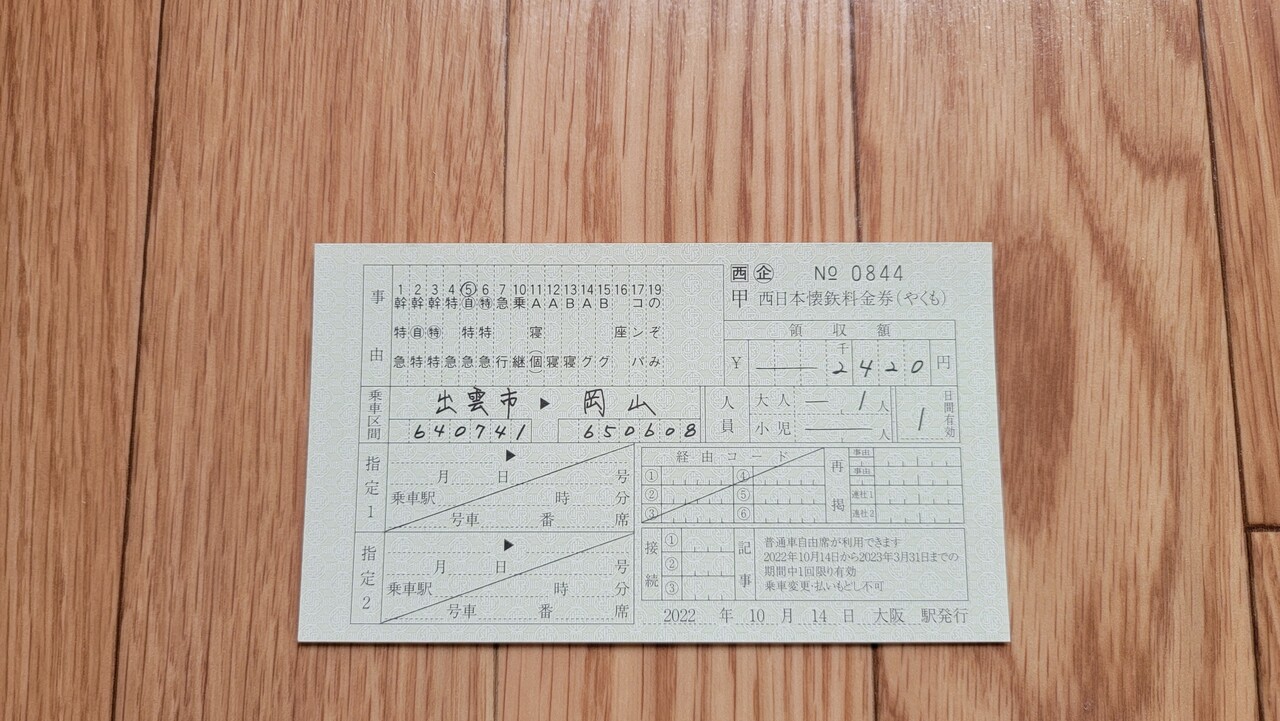 西 企 № 0844
甲 西日本懐鉄料金券(やくも)
事由
1 2 3 4 ⑤ 6 7 10 11 12 13 14 15 16 17 19
幹 幹 幹 特 自 特 急 乗 A A B A B コ の
特 自 特 特 特 寝 座 ン ぞ
急 特 特 急 急 急 行 継 個 寝 寝 グ グ バ み
領収額
¥ ― 2千420円
乗車区間
出雲市 ▶ 岡山
640741 650608
人員
大人 ― 1人
小児 ― 人
1 日間有効
指定1
▶
月 日 号
乗車駅 時 分
号車 番 席
指定2
▶
月 日 号
乗車駅 時 分
号車 番 席
経由コード
① ④
② ⑤
③ ⑥
再掲
事由
事由
連社1
連社2
接続
①
②
③
記事
普通車自由席が利用できます
2022年10月14日から2023年3月31日までの
期間中1回限り有効
乗車変更・払いもどし不可
2022 年 10 月 14 日 大阪 駅発行